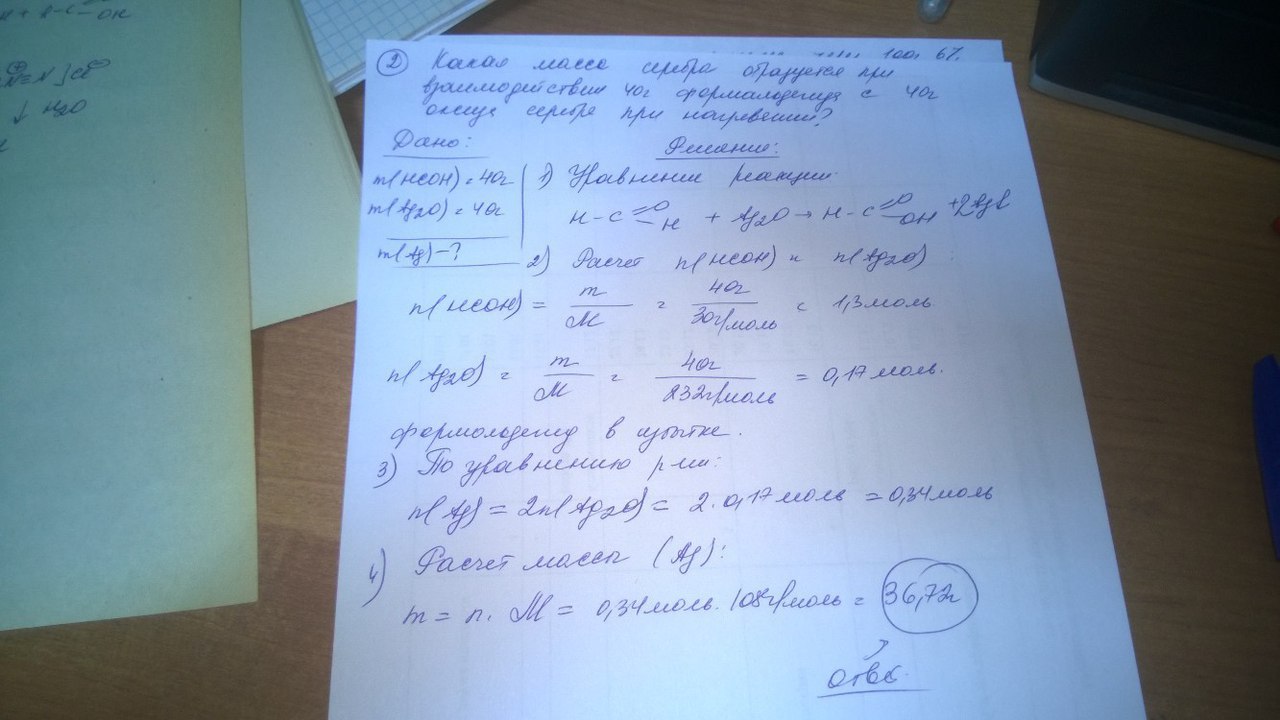 OH
N≡N]Cl
↓ H2O
100. 6%.
② Какая масса серебра образуется при
взаимодействии 40г формальдегида с 40г
оксида серебра при нагревании?
Дано:
Решение:
m(HCOH) = 40г
1) Уравнение реакции
m(Ag2O) = 40г
H-C=O-H + Ag2O → H-C=O-OH + 2Ag↓
m(Ag)-?
2) Расчет n(HCOH) и n(Ag2O):
n(HCOH) = m/M = 40г/30г/моль = 1,3 моль
n(Ag2O) = m/M = 40г/232г/моль = 0,17 моль.
формальдегид в избытке.
3) По уравнению р-ии:
n(Ag) = 2n(Ag2O) = 2·0,17 моль = 0,34 моль
4) Расчет массы (Ag):
m = n·M = 0,34 моль·108г/моль = 36,72г
ответ.